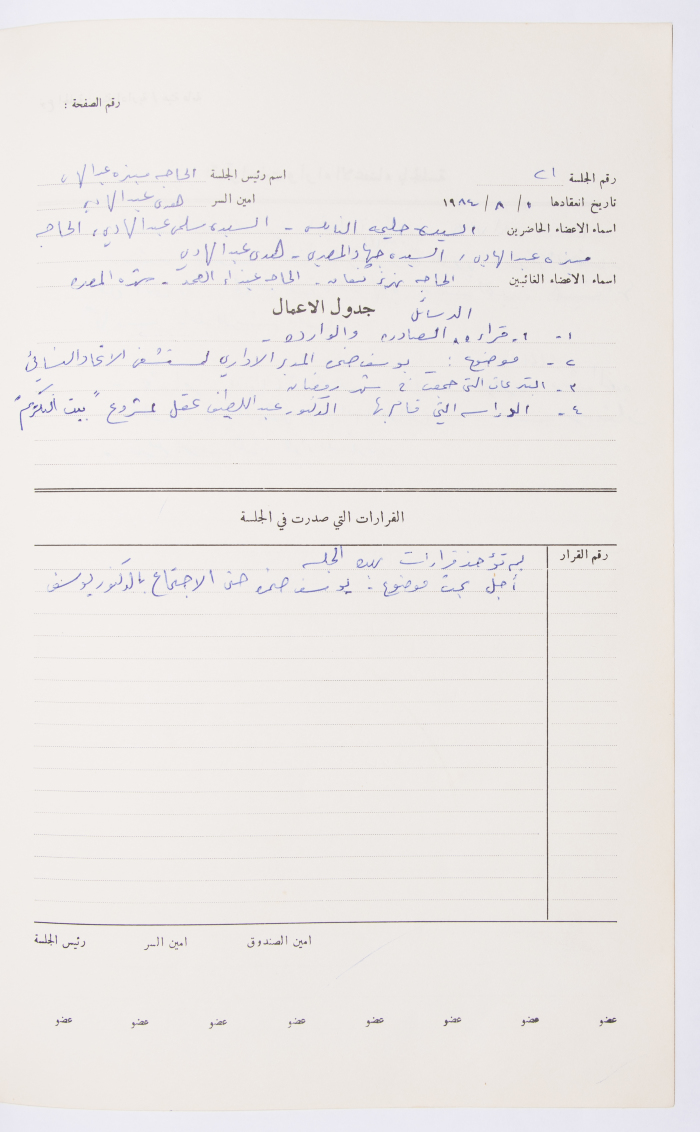 رقم الصفحة :
رقم الجلسة ٢١ اسم رئيس الجلسة الحاجه ميسره عبد الهادي
تاريخ انعقادها ١ / ٨ / ١٩٨٤ امين السر هدى عبد الهادي
اسماء الاعضاء الحاضرين السيده حليمه النابلسي - السيده سلمى عبد الهادي ، الحاجه
ميسره عبد الهادي ، السيده جهاد المصري - هدى عبد الهادي
اسماء الاعضاء الغائبين الحاجه كنعان - الحاجه عيناء - المصري
جدول الاعمال
١- قراءه الرسائل الصادره والوارده -
٢- موضوع : يوسف المدير الاداري لمستشفى الاتحاد النسائي
٣- التبرعات التي جمعت في شهر رمضان
٤- الدراسه التي قام بها الدكتور عبد اللطيف عقل لمشروع " بيت "
القرارات التي صدرت في الجلسة
رقم القرار
لم تؤخذ قرارات بهذه الجلسه
أجل بحث موضوع : يوسف حتى الاجتماع بالدكتور يوسف
امين الصندوق امين السر رئيس الجلسة
عضو عضو عضو عضو عضو عضو عضو عضو